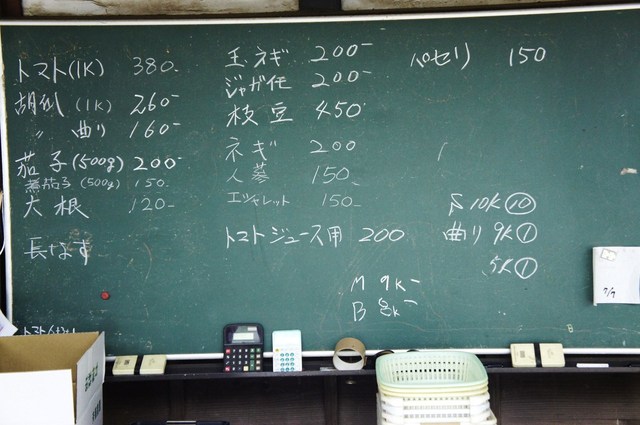 トマト(1K) 380-
胡瓜(1K) 260-
〃 曲り 160-
茄子(500g) 200-
蒸茄子(500g) 150-
大根 120-
長なす
玉ネギ 200-
ジャガ芋 200-
枝豆 450
ネギ 200
人蔘 150
エシャレット 150-
トマトジュース用 200
パセリ 150
10K ⑩
曲り 9K ①
5K ①
M 9K-
B 8K-
7/7